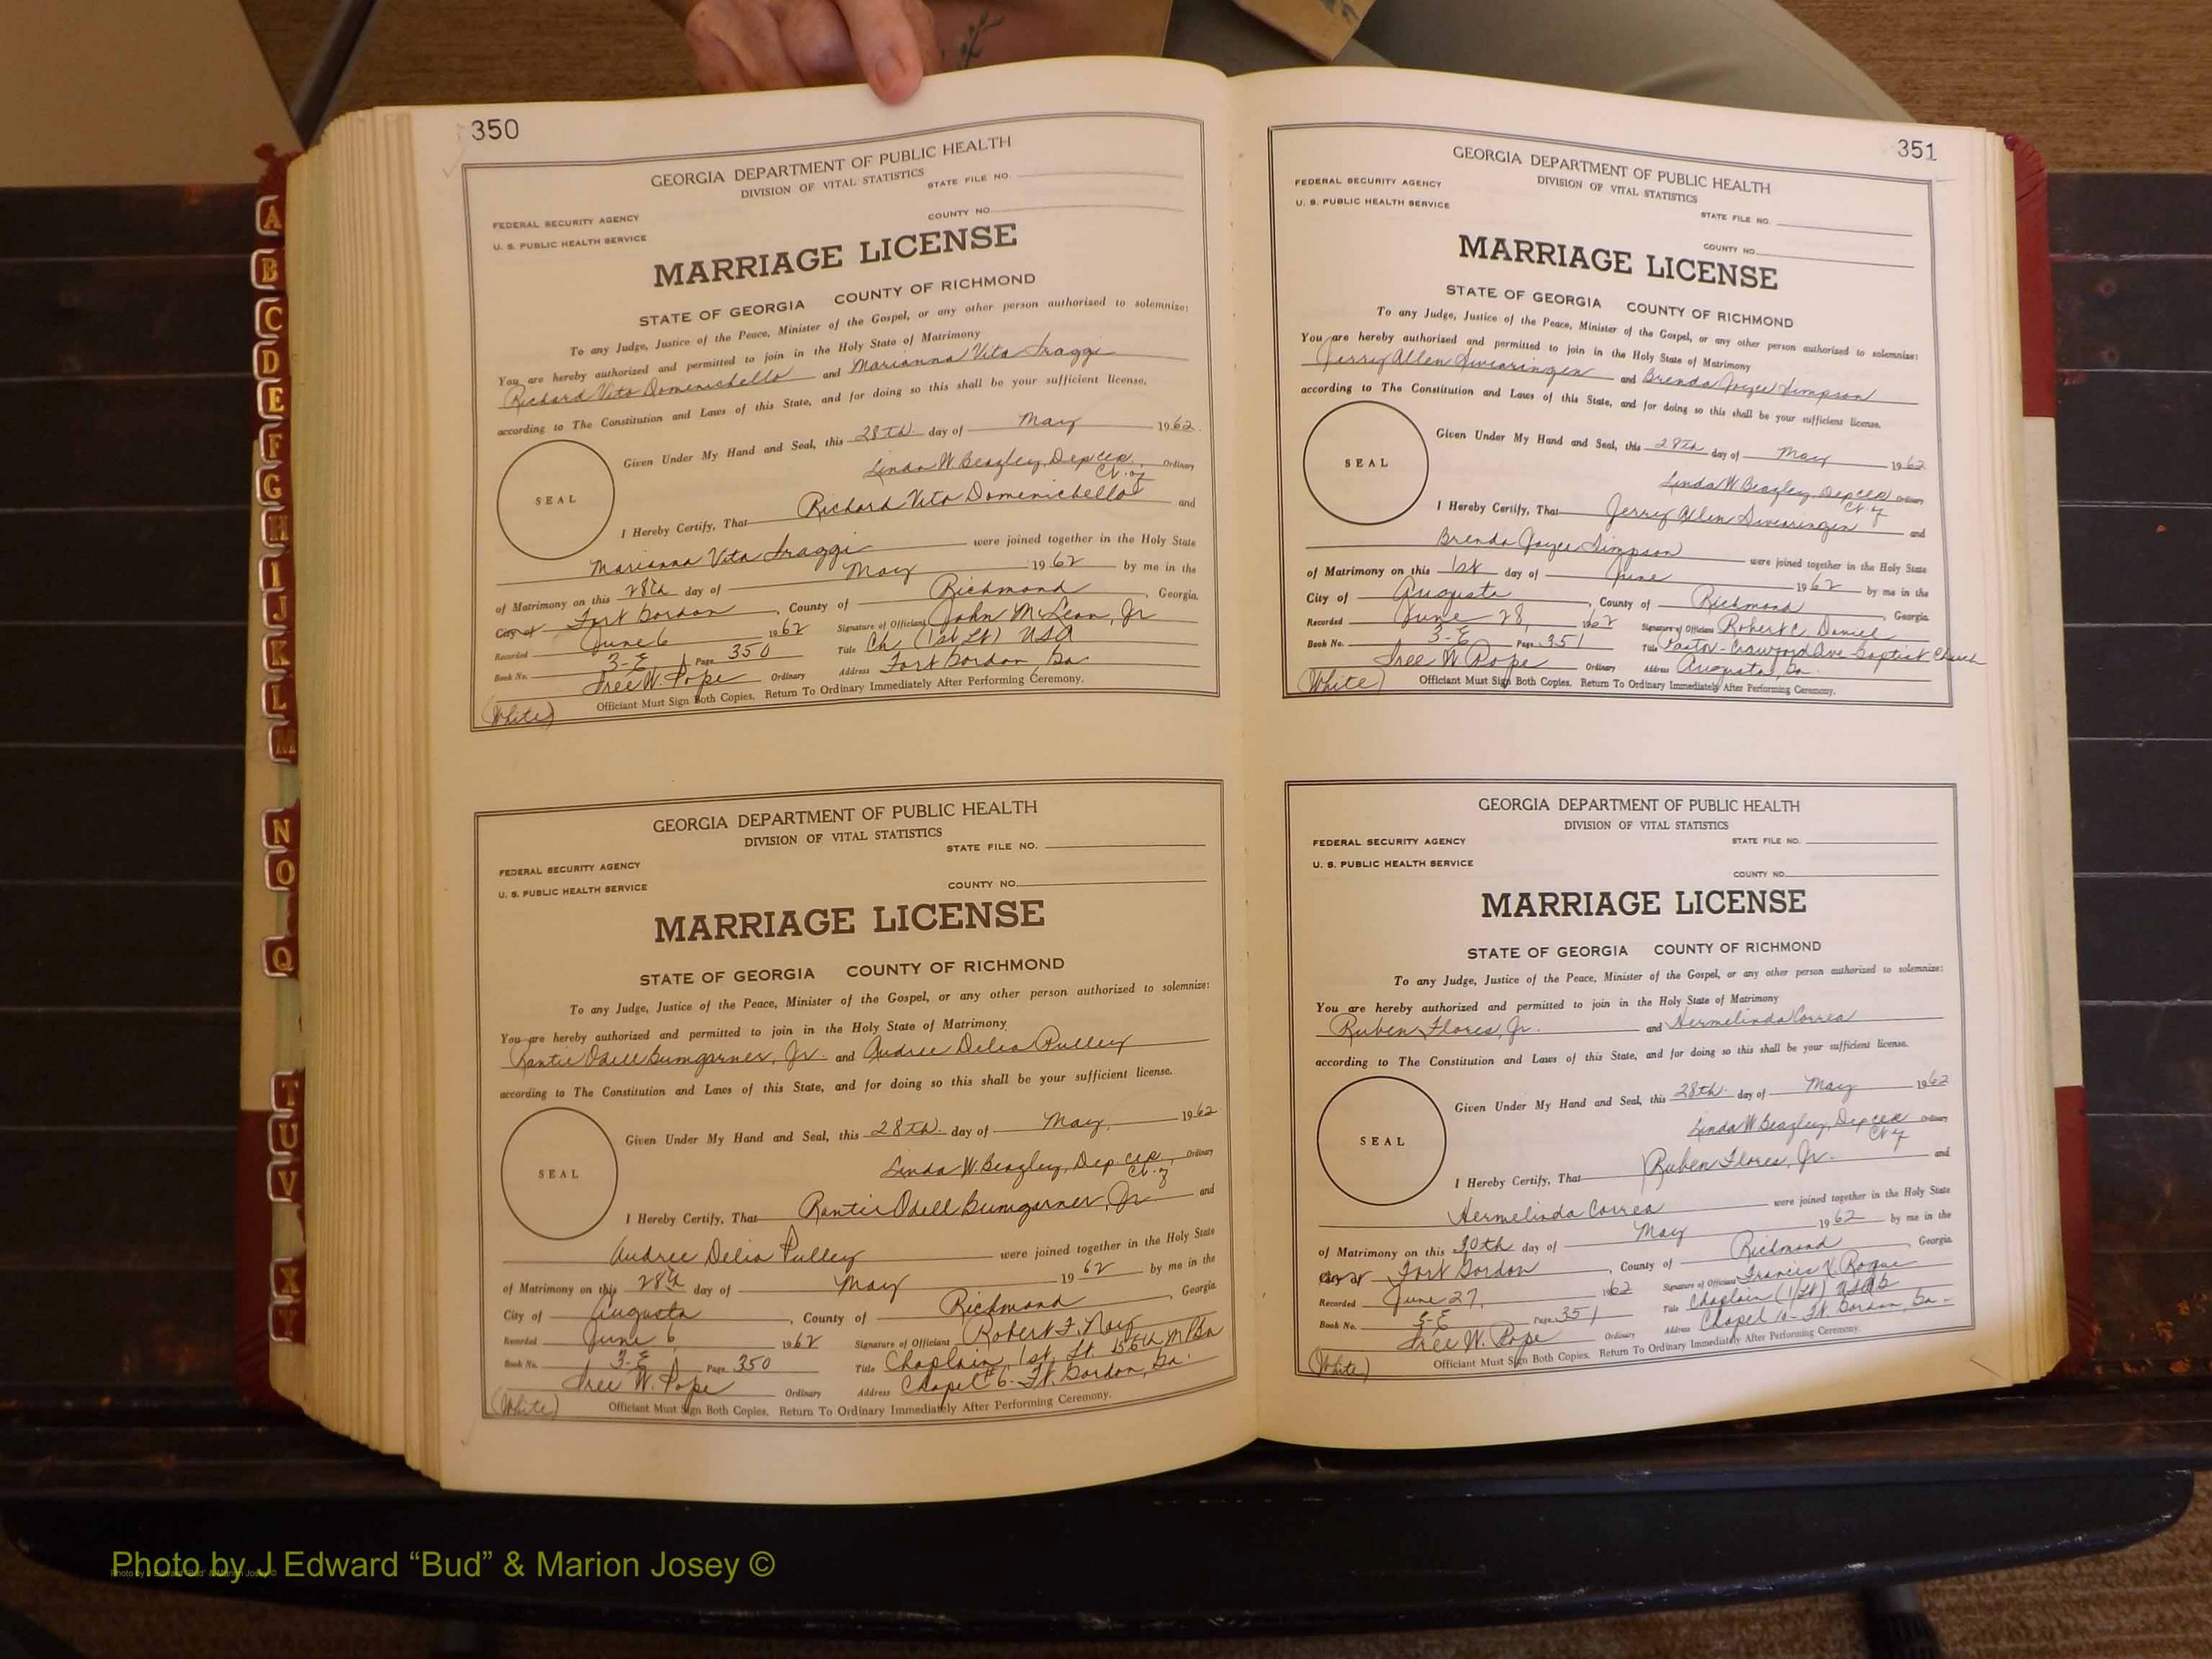 350
GEORGIA DEPARTMENT OF PUBLIC HEALTH
DIVISION OF VITAL STATISTICS
STATE FILE NO.
FEDERAL SECURITY AGENCY
COUNTY NO.
U. S. PUBLIC HEALTH SERVICE
MARRIAGE LICENSE
STATE OF GEORGIA COUNTY OF RICHMOND
To any Judge, Justice of the Peace, Minister of the Gospel, or any other person authorized to solemnize:
You are hereby authorized and permitted to join in the Holy State of Matrimony
Richard Vito Domenichello and Marianna Vita Iraggi
according to The Constitution and Laws of this State, and for doing so this shall be your sufficient license.
Given Under My Hand and Seal, this 28th day of May 1962
Linda W. Beazley, Dep Clk Ordinary
Ct. of
SEAL
I Hereby Certify, That Richard Vito Domenichello and
Marianna Vita Iraggi were joined together in the Holy State
of Matrimony on this 28th day of May 1962 by me in the
City of Fort Gordon, County of Richmond, Georgia.
Recorded June 6 1962 Signature of Officiant John McLean, Jr
Book No. 3-E Page 350 Title Ch (1st Lt) USA
Free W. Pope Ordinary Address Fort Gordon, Ga
(White) Officiant Must Sign Both Copies. Return To Ordinary Immediately After Performing Ceremony.
GEORGIA DEPARTMENT OF PUBLIC HEALTH
DIVISION OF VITAL STATISTICS
STATE FILE NO.
FEDERAL SECURITY AGENCY
U. S. PUBLIC HEALTH SERVICE
COUNTY NO.
MARRIAGE LICENSE
STATE OF GEORGIA COUNTY OF RICHMOND
To any Judge, Justice of the Peace, Minister of the Gospel, or any other person authorized to solemnize:
You are hereby authorized and permitted to join in the Holy State of Matrimony
Rantie Odell Bumgarner, Jr. and Audree Delia Pulley
according to The Constitution and Laws of this State, and for doing so this shall be your sufficient license.
Given Under My Hand and Seal, this 28th day of May, 1962
Linda W. Beazley, Dep Clk, Ordinary
Ct. of
SEAL
I Hereby Certify, That Rantie Odell Bumgarner, Jr and
Audree Delia Pulley were joined together in the Holy State
of Matrimony on this 28th day of May 1962 by me in the
City of Augusta, County of Richmond, Georgia
Recorded June 6 1962 Signature of Officiant Robert F.
Book No. 3-E Page 350 Title Chaplain, 1st. Lt.
Free W. Pope Ordinary Address Chapel #6 - Ft. Gordon, Ga.
(White) Officiant Must Sign Both Copies. Return To Ordinary Immediately After Performing Ceremony.
351
GEORGIA DEPARTMENT OF PUBLIC HEALTH
DIVISION OF VITAL STATISTICS
FEDERAL SECURITY AGENCY
U. S. PUBLIC HEALTH SERVICE
STATE FILE NO.
COUNTY NO.
MARRIAGE LICENSE
STATE OF GEORGIA COUNTY OF RICHMOND
To any Judge, Justice of the Peace, Minister of the Gospel, or any other person authorized to solemnize:
You are hereby authorized and permitted to join in the Holy State of Matrimony
Jerry Allen Swearingen and Brenda Joyce Simpson
according to The Constitution and Laws of this State, and for doing so this shall be your sufficient license.
Given Under My Hand and Seal, this 28th day of May 1962
Linda W Beazley, Dep Clk Ordinary
Ct. of
SEAL
I Hereby Certify, That Jerry Allen Swearingen and
Brenda Joyce Simpson were joined together in the Holy State
of Matrimony on this 1st day of June 1962 by me in the
City of Augusta, County of Richmond, Georgia
Recorded June 28, 1962 Signature of Officiant Robert C. Daniel
Book No. 3-E Page 351 Title Pastor - Crawford Ave Baptist Church
Free W Pope Ordinary Address Augusta, Ga.
(White) Officiant Must Sign Both Copies. Return To Ordinary Immediately After Performing Ceremony.
GEORGIA DEPARTMENT OF PUBLIC HEALTH
DIVISION OF VITAL STATISTICS
FEDERAL SECURITY AGENCY
STATE FILE NO.
U. S. PUBLIC HEALTH SERVICE
COUNTY NO.
MARRIAGE LICENSE
STATE OF GEORGIA COUNTY OF RICHMOND
To any Judge, Justice of the Peace, Minister of the Gospel, or any other person authorized to solemnize:
You are hereby authorized and permitted to join in the Holy State of Matrimony
Ruben Flores, Jr. and Hermelinda Correa
according to The Constitution and Laws of this State, and for doing so this shall be your sufficient license.
Given Under My Hand and Seal, this 28th day of May 1962
Linda W Beazley, Dep Clk Ordinary
Ct. of
SEAL
I Hereby Certify, That Ruben Flores, Jr. and
Hermelinda Correa were joined together in the Holy State
of Matrimony on this 30th day of May 1962 by me in the
City of Fort Gordon, County of Richmond, Georgia
Recorded June 27, 1962 Signature of Officiant Francis V. Rogue
Book No. 3-E Page 351 Title Chaplain (1/Lt)
Free W. Pope Ordinary Address Chapel 10 - Ft. Gordon, Ga.
(White) Officiant Must Sign Both Copies. Return To Ordinary Immediately After Performing Ceremony.
A
B
C
D
E
F
G
H
I
J
K
L
M
N
O
Q
T
U
V
X
Y
Photo by J Edward “Bud” & Marion Josey ©
Photo by J Edward “Bud” & Marion Josey ©